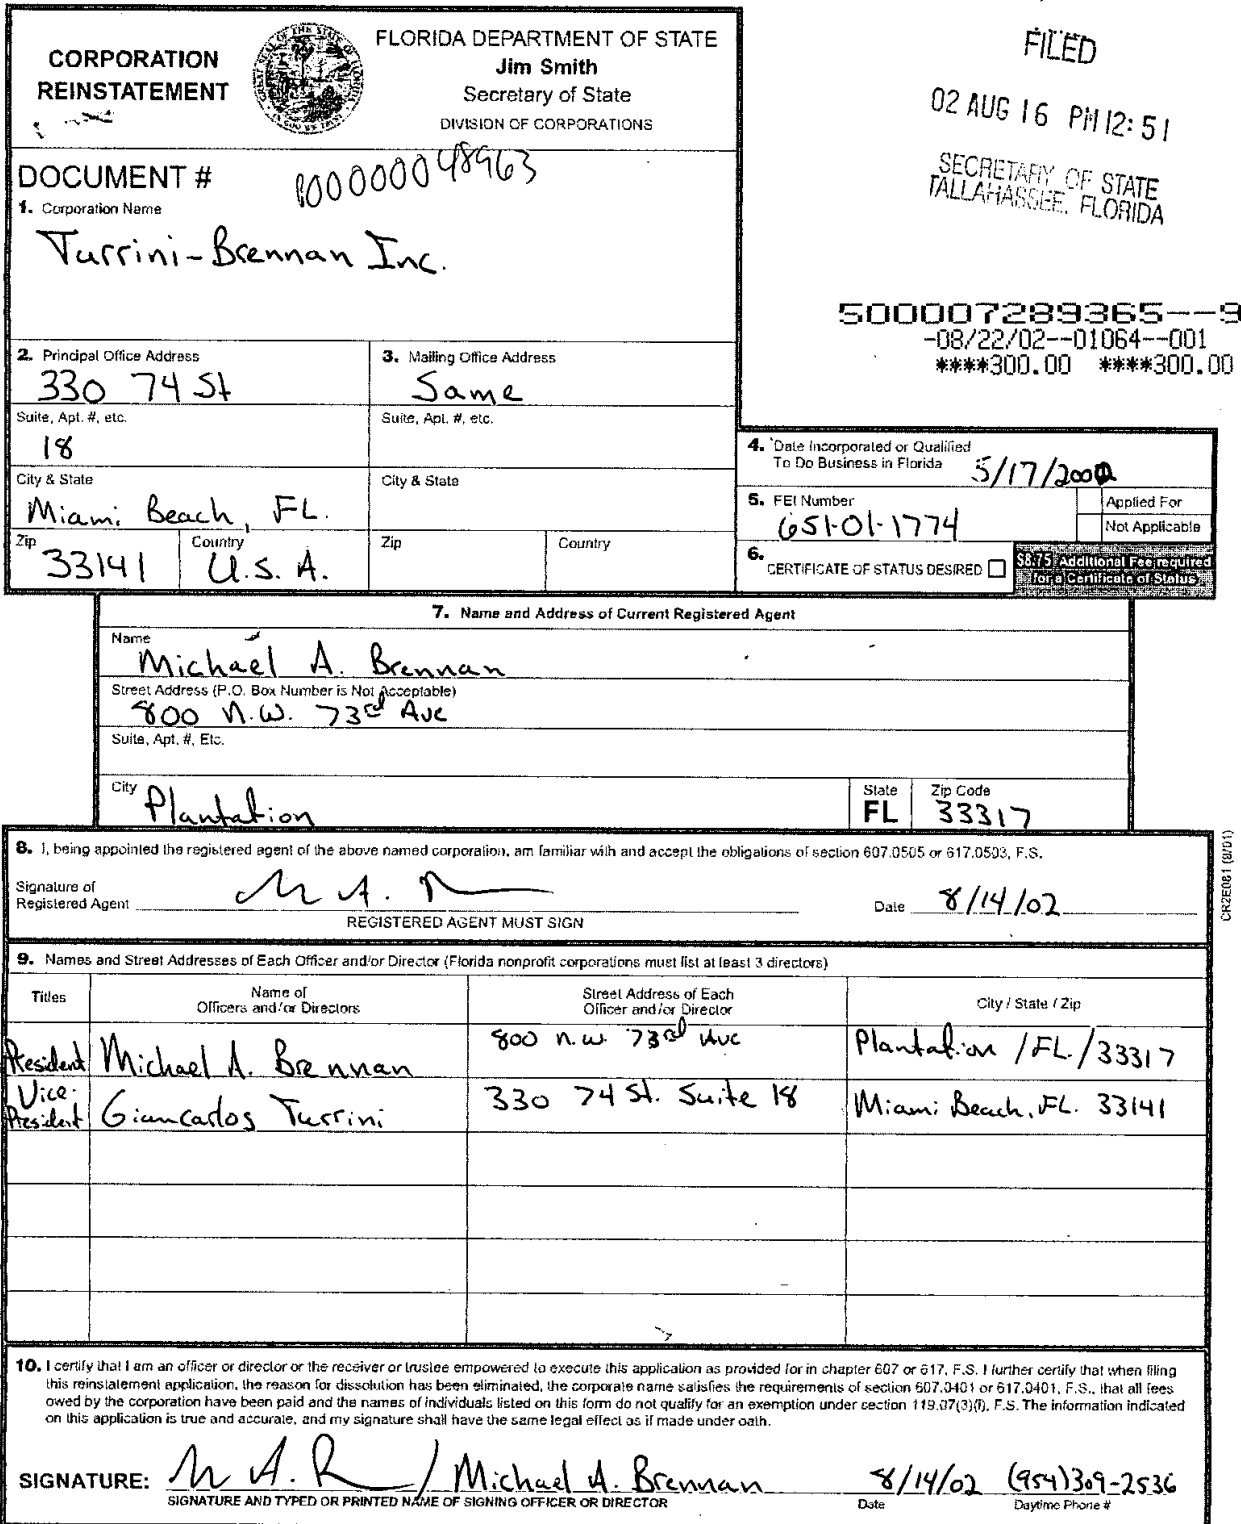 CORPORATION
REINSTATEMENT
FLORIDA DEPARTMENT OF STATE
Jim Smith
Secretary of State
DIVISION OF CORPORATIONS
FILED
02 AUG 16 PM 12:51
SECRETARY OF STATE
TALLAHASSEE, FLORIDA
DOCUMENT # P00000048963
1. Corporation Name
Turrini-Brennan Inc.
500007289365--9
-08/22/02--01064--001
****300.00 ****300.00
2. Principal Office Address
330 74 St
3. Mailing Office Address
Same
Suite, Apt. #, etc.
18
Suite, Apt. #, etc.
City & State
Miami Beach, FL.
City & State
Zip
33141
Country
U.S.A.
Zip
Country
4. Date Incorporated or Qualified
To Do Business in Florida 5/17/2000
5. FEI Number
651-01-1774
Applied For
Not Applicable
6. CERTIFICATE OF STATUS DESIRED
$8.75 Additional Fee required
for a Certificate of Status
7. Name and Address of Current Registered Agent
Name
Michael A. Brennan
Street Address (P.O. Box Number is Not Acceptable)
800 N.W. 73rd Ave
Suite, Apt. #, Etc.
City
Plantation
State
FL
Zip Code
33317
8. I, being appointed the registered agent of the above named corporation, am familiar with and accept the obligations of section 607.0505 or 617.0503, F.S.
Signature of
Registered Agent
Date 8/14/02
REGISTERED AGENT MUST SIGN
CR2E081 (8/01)
9. Names and Street Addresses of Each Officer and/or Director (Florida nonprofit corporations must list at least 3 directors)
Titles
Name of
Officers and/or Directors
Street Address of Each
Officer and/or Director
City / State / Zip
President Michael A. Brennan 800 N.W. 73rd Ave Plantation / FL. / 33317
Vice-
President Giancarlos Turrini 330 74 St. Suite 18 Miami Beach, FL. 33141
10. I certify that I am an officer or director or the receiver or trustee empowered to execute this application as provided for in chapter 607 or 617, F.S. I further certify that when filing
this reinstatement application, the reason for dissolution has been eliminated, the corporate name satisfies the requirements of section 607.0401 or 617.0401, F.S., that all fees
owed by the corporation have been paid and the names of individuals listed on this form do not qualify for an exemption under section 119.07(3)(i), F.S. The information indicated
on this application is true and accurate, and my signature shall have the same legal effect as if made under oath.
SIGNATURE: / Michael A. Brennan 8/14/02 (954)309-2536
SIGNATURE AND TYPED OR PRINTED NAME OF SIGNING OFFICER OR DIRECTOR
Date
Daytime Phone #